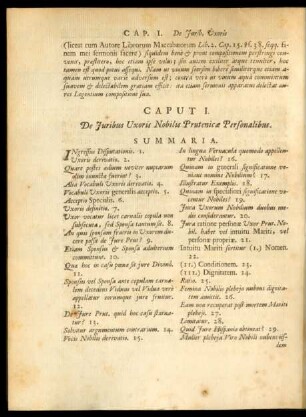 CAP. I. De Jurib. Uxoris
(licet cum Autore Librorum Maccabæorum Lib. 2. Cap. 15. vs. 38. seqq. finem mei sermonis facere) siquidem bene & prout compositionem perstringi convenit, præstitero, hoc etiam ipse velim;
tamen est quod potui assequi. Nam ut vinum seorsim bibere similiterque etiam aquam utrumque noxiè adversum est; contrà verò ut vinum aquæ commixtum
suavem & delectabilem gratiam efficit: ita etiam sermonis apparatus delectat aures Legentium compositione sua.
CAPUT I.
De Juribus Uxoris Nobilis Prutenicæ Personalibus.
SUMMARIA.
INgressus Disputationis. 1.
Uxoris derivatio. 2.
Quare postes aditum uxoriæ nuptarum olim inuncta fuerint? 3.
Alia Vocabuli Uxoris derivatio. 4.
Vocabuli Uxoris generalis acceptio. 5.
Acceptio Specialis. 6.
Uxoris definitio. 7.
Uxor vocatur licet carnalis copula non subsecuta, sed Sponsa tantùm sit. 8.
An quis sponsam fractio in Uxorem ducere possit de Jure Prut? 9.
Etiam Sponsus & Sponsa adulterium committunt. 10.
Quid hoc in casu pœnæ sit jure Divino. 11.
Sponsus vel Sponsa ante copulam carnalem decedens Viduus vel Vidua verè appellatur eorumque jure fruitur. 12.
De Jure Prut. quid hoc casu statuatur? 13.
Solvitur argumentum contrarium. 14.
Vocis Nobilis derivatio. 15.
In lingua Vernacula quomodo appellentur Nobiles? 16.
Quinam in generali significatione veniant nomine Nobilium? 17.
Illustratur Exemplo. 18.
Quinam in specialiori significatione vocentur Nobiles? 19.
Jura Uxorum Nobilium duobus modis considerantur. 20.
Jura ratione personæ Uxor Prut. Nobil. habet vel intuitu Mariti, vel personæ propriæ. 21.
Intuitu Mariti sortitur (1.) Nomen. 22.
(II.) Conditionem. 23.
(III.) Dignitatem. 24.
Ratio. 25.
Femina Nobilis plebejo nubens dignitatem amittit. 26.
Eam non recuperat post mortem Mariti plebeji. 27.
Limitatur. 28.
Quid Jure Hispanico obtineat? 29.
Mulier plebeja Viro Nobili nubens